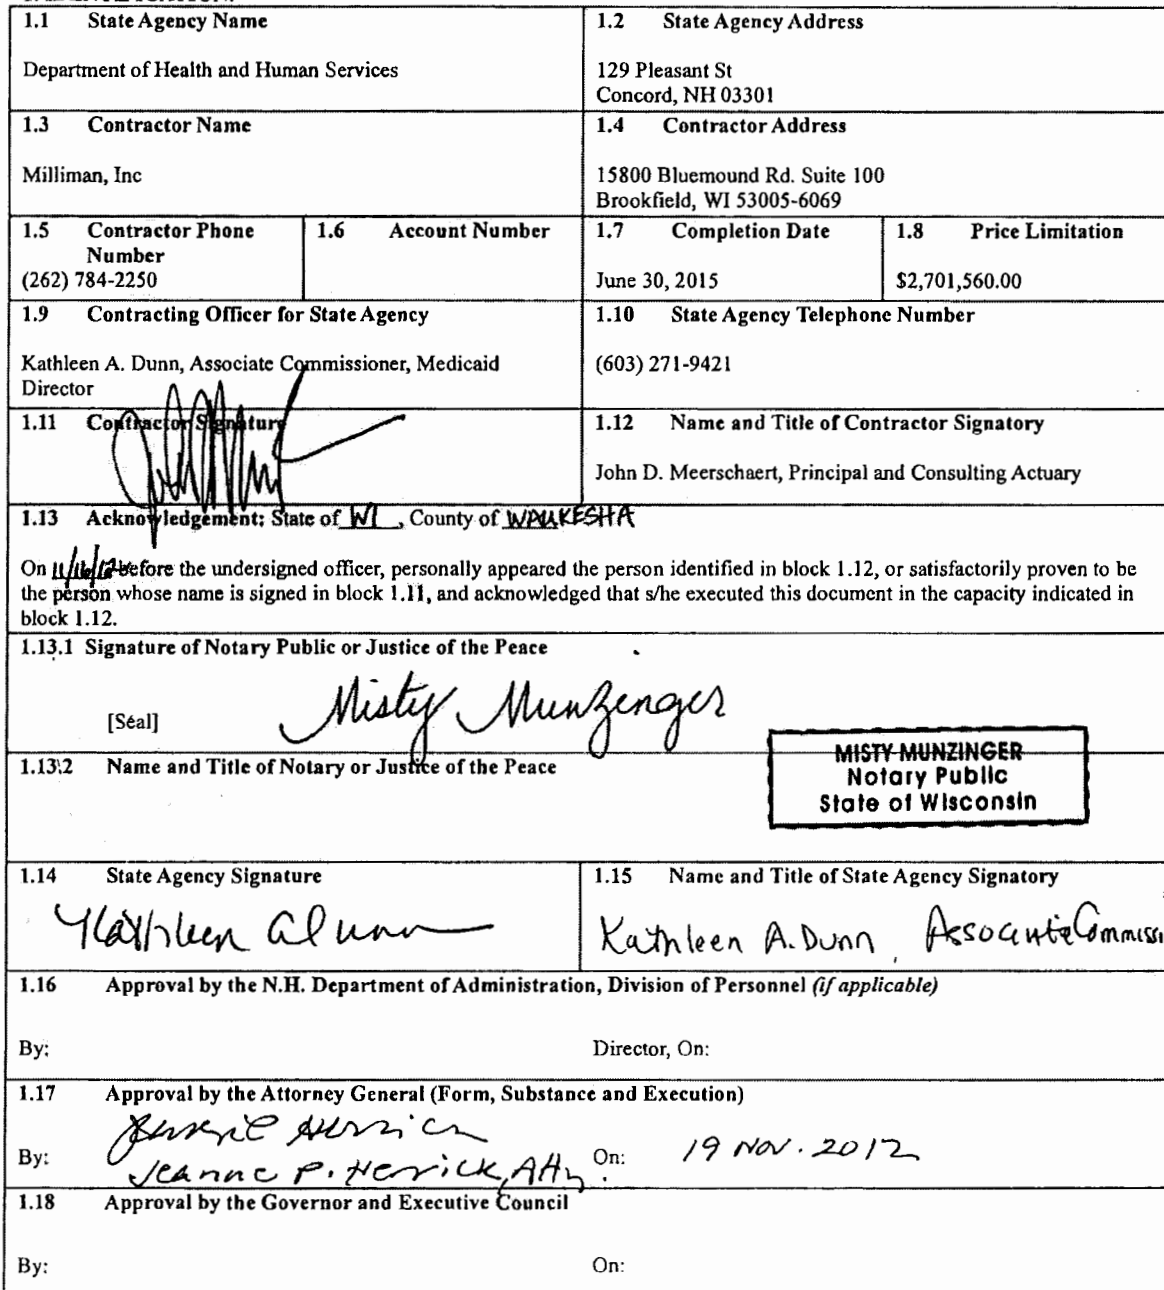 1.1 State Agency Name
Department of Health and Human Services
1.2 State Agency Address
129 Pleasant St
Concord, NH 03301
1.3 Contractor Name
Milliman, Inc
1.4 Contractor Address
15800 Bluemound Rd. Suite 100
Brookfield, WI 53005-6069
1.5 Contractor Phone
Number
(262) 784-2250
1.6 Account Number
1.7 Completion Date
June 30, 2015
1.8 Price Limitation
$2,701,560.00
1.9 Contracting Officer for State Agency
Kathleen A. Dunn, Associate Commissioner, Medicaid
Director
1.10 State Agency Telephone Number
(603) 271-9421
1.11 Contractor Signature
1.12 Name and Title of Contractor Signatory
John D. Meerschaert, Principal and Consulting Actuary
1.13 Acknowledgement: State of WI, County of WAUKESHA
On 11/16/12 before the undersigned officer, personally appeared the person identified in block 1.12, or satisfactorily proven to be
the person whose name is signed in block 1.11, and acknowledged that s/he executed this document in the capacity indicated in
block 1.12.
1.13.1 Signature of Notary Public or Justice of the Peace
Misty Munzinger
[Seal]
MISTY MUNZINGER
Notary Public
State of Wisconsin
1.13.2 Name and Title of Notary or Justice of the Peace
1.14 State Agency Signature
Kathleen A Dunn
1.15 Name and Title of State Agency Signatory
Kathleen A. Dunn, Associate Commissi
1.16 Approval by the N.H. Department of Administration, Division of Personnel (if applicable)
By:
Director, On:
1.17 Approval by the Attorney General (Form, Substance and Execution)
By: Jeanne P. Herrick, Atty.
On: 19 Nov. 2012
1.18 Approval by the Governor and Executive Council
By:
On: